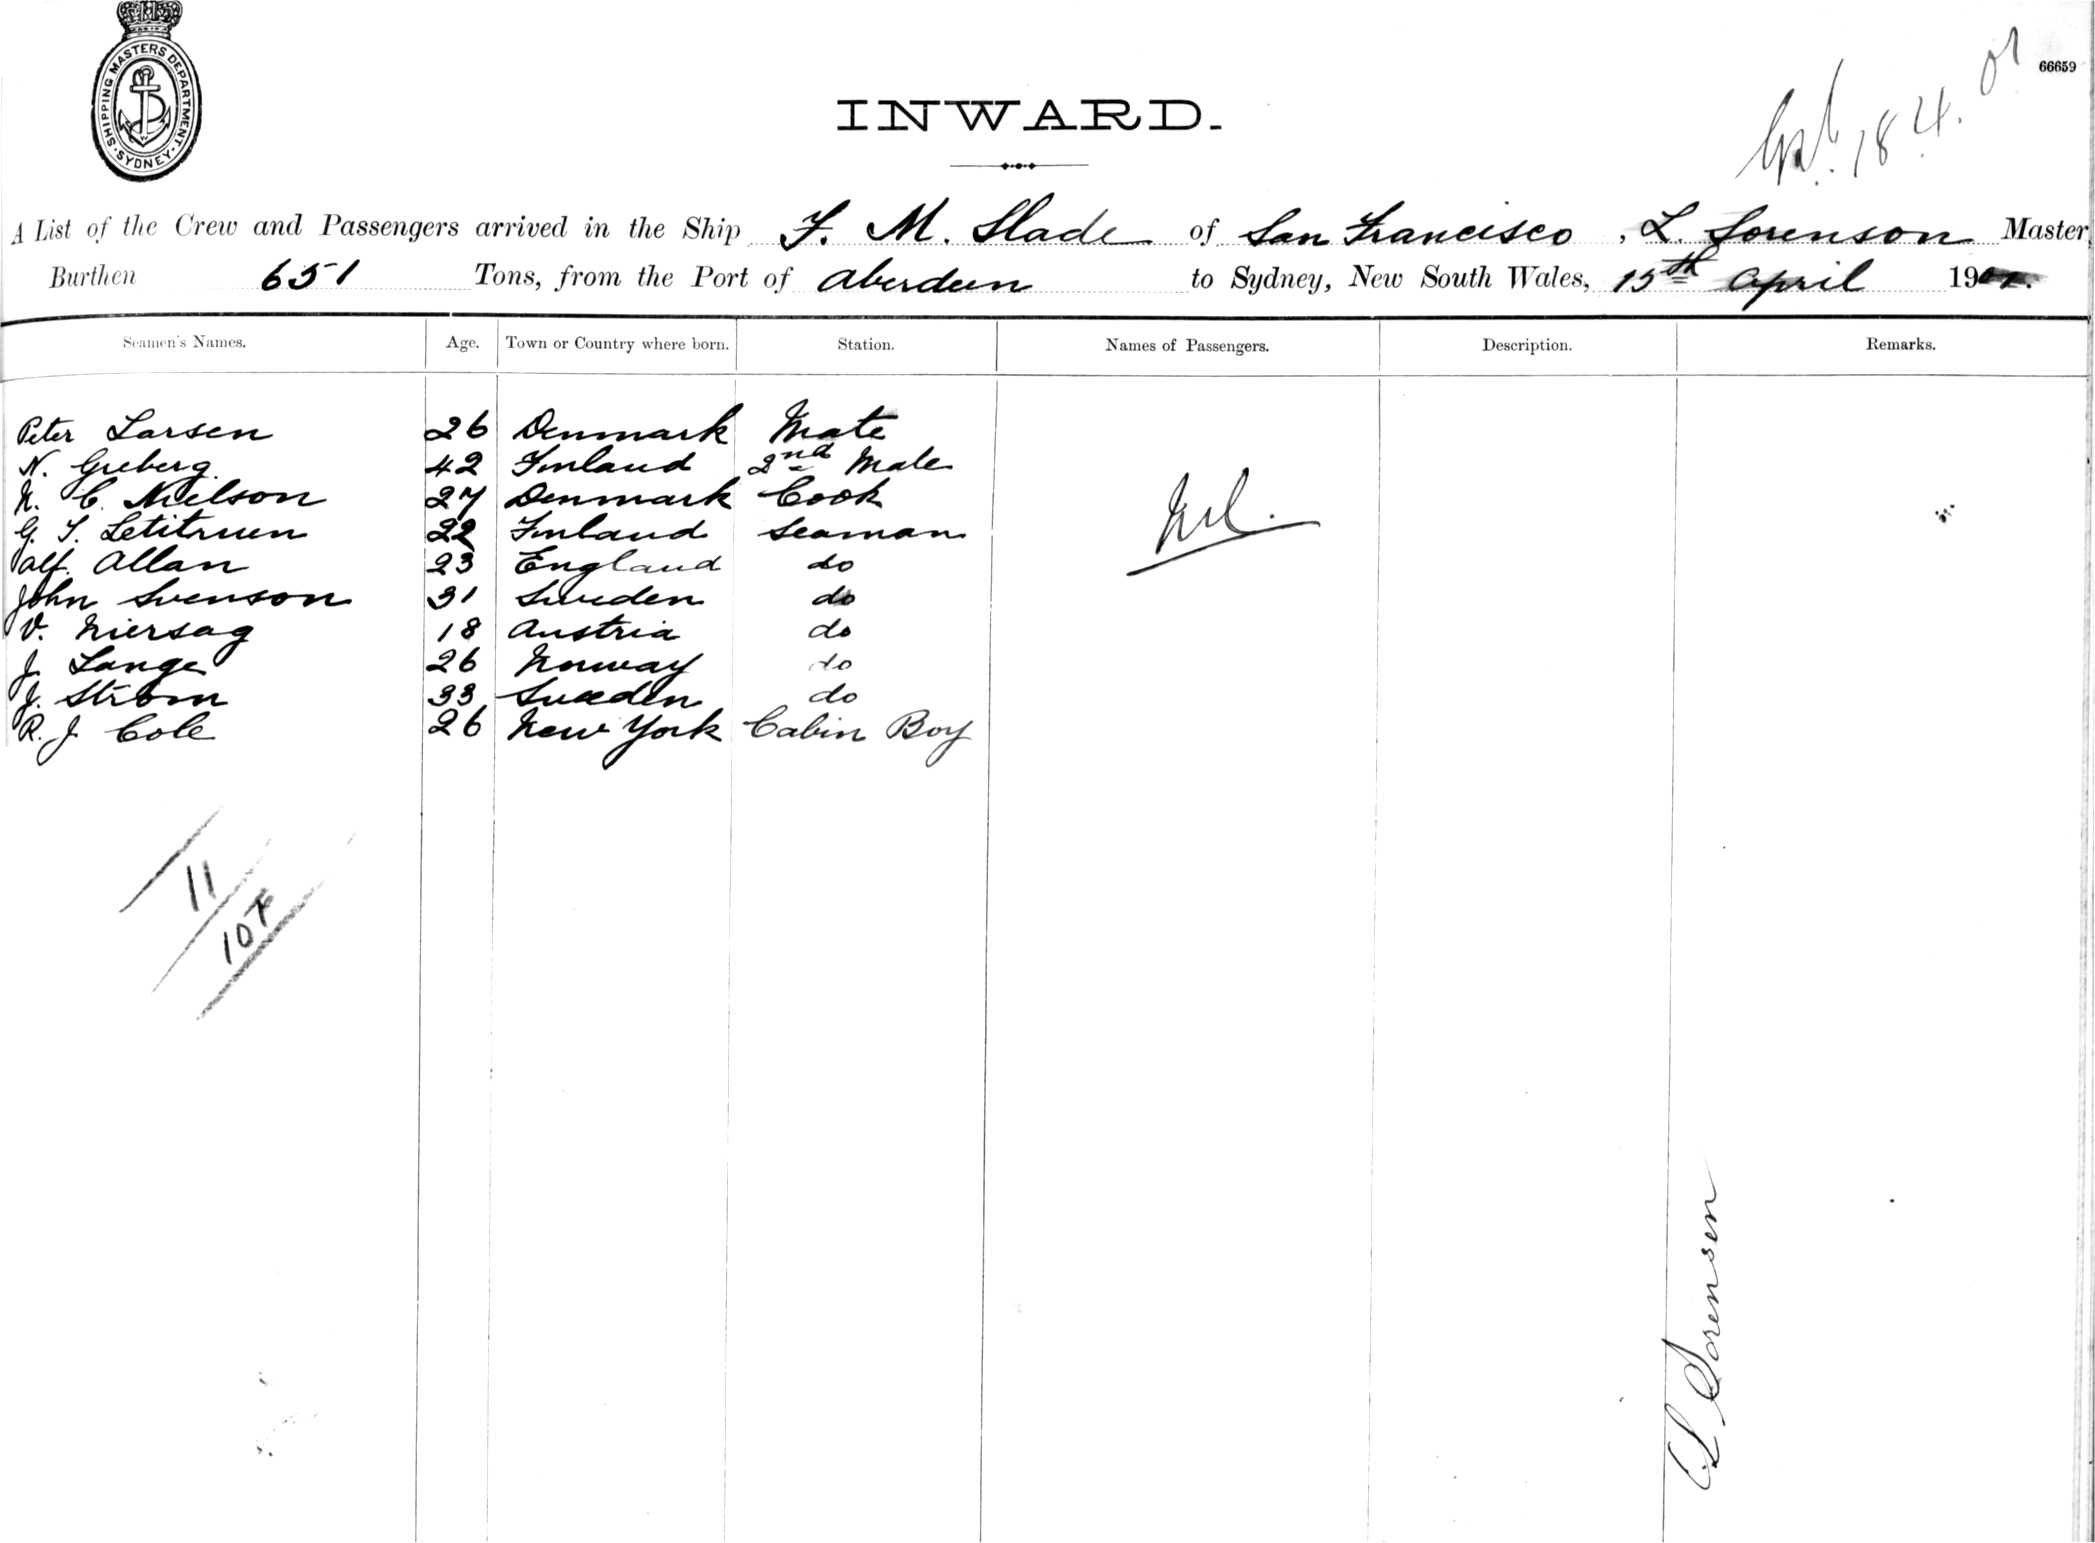 SHIPPING MASTERS DEPARTMENT. SYDNEY.
66659
18.4.01
INWARD.
A List of the Crew and Passengers arrived in the Ship F. M. Slade of San Francisco, L. Sorenson Master,
Burthen 651 Tons, from the Port of Aberdeen to Sydney, New South Wales, 15th April 1901.
Seamen's Names. Age. Town or Country where born. Station. Names of Passengers. Description. Remarks.
Peter Larsen 26 Denmark Mate
N. Greberg 42 Finland 2nd Mate
N. C. Nielson 27 Denmark Cook
G. S. 22 Finland Seaman
Nil.
Alf. Allan 23 England do
John Svenson 31 Sweden do
V. Niersag 18 Austria do
J. Lange 26 Norway do
J. Strom 33 Sweden do
R. J. Cole 26 New York Cabin Boy
11
10
L Sorensen